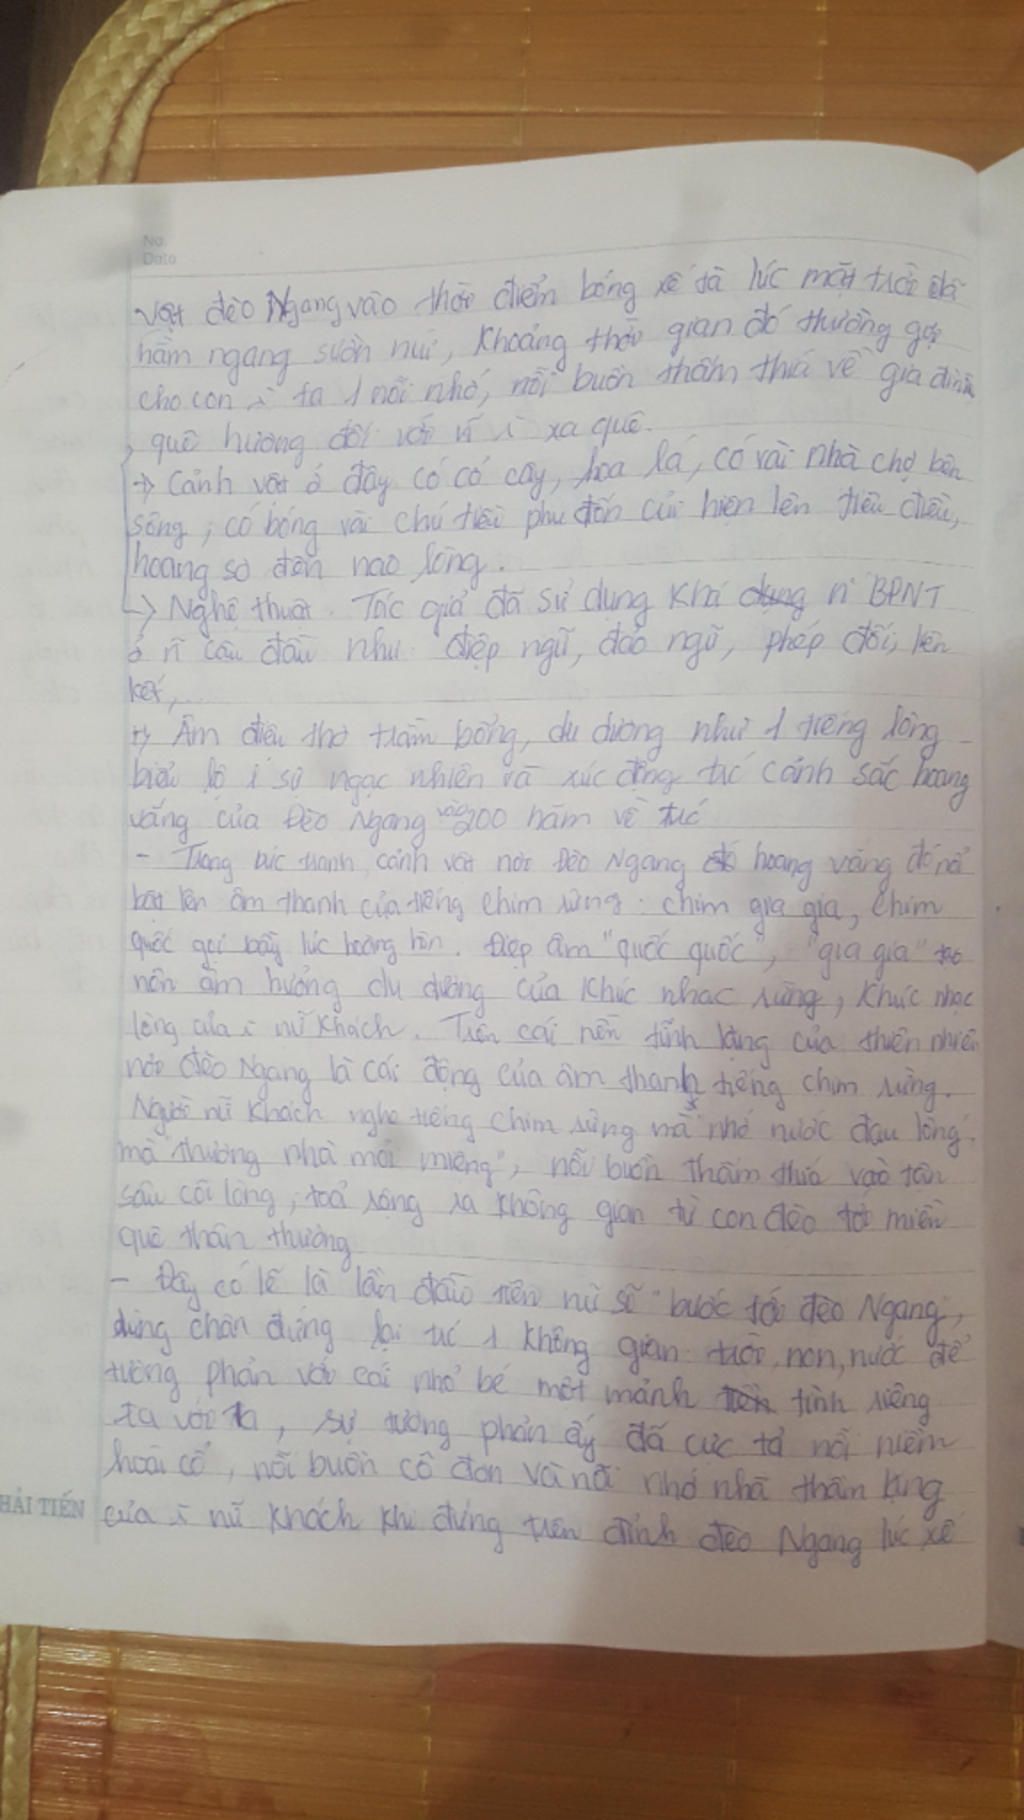 No.
Date
vật đèo Ngang vào thời điểm bóng xế tà lúc mặt trời đã
hầm ngang sườn núi, khoảng thời gian đó thường gợi
cho con ì ta 1 nỗi nhớ, nỗi buồn thấm thía về gia đình
, quê hương đối với ~ ì xa quê.
-> Cảnh vật ở đây có cỏ cây, hoa lá, có vài nhà chợ bên
sông, có bóng vài chú tiều phu đốn củi hiện lên tiêu điều,
hoang sơ đến nao lòng.
-> Nghệ thuật. Tác giả đã sử dụng khá ~ BPNT
ở ~ câu đầu như điệp ngữ, đảo ngữ, phép đối, liên
kết,...
-> Âm điệu thơ trầm bổng, du dương như 1 tiếng lòng
biểu lộ 1 sự ngạc nhiên và xúc động trc cảnh sắc hoang
vắng của Đèo Ngang vào 200 năm về trc
- Trong bức tranh, cảnh vật nơi Đèo Ngang hoang vắng đó nổi
bật lên âm thanh của tiếng chim rừng: chim gia gia, chim
quốc gọi bầy lúc hoàng hôn. Điệp âm "quốc quốc", "gia gia" tạo
nên âm hưởng du dương của khúc nhạc rừng, khúc nhạc
lòng của ì nữ khách. Trên cái nền tĩnh lặng của thiên nhiên
nơi đèo Ngang là cái động của âm thanh tiếng chim rừng.
Người nữ khách nghe tiếng chim rừng mà "nhớ nước đau lòng",
mà "thương nhà mỏi miệng", nỗi buồn thấm thía vào tận
sâu cõi lòng, toả rộng ra không gian từ con đèo tới miền
quê thân thương
- Đây có lẽ là lần đầu tiên nữ sĩ "bước tới đèo Ngang",
dừng chân đứng lại trc 1 không gian: trời, non, nước để
tương phản với cái nhỏ bé một mảnh tình riêng
ta với ta, sự tương phản ấy đã cực tả nỗi niềm
hoài cổ, nỗi buồn cô đơn và nỗi nhớ nhà thầm lặng
của ì nữ khách khi đứng trên đỉnh đèo Ngang lúc xế
HẢI TIẾN